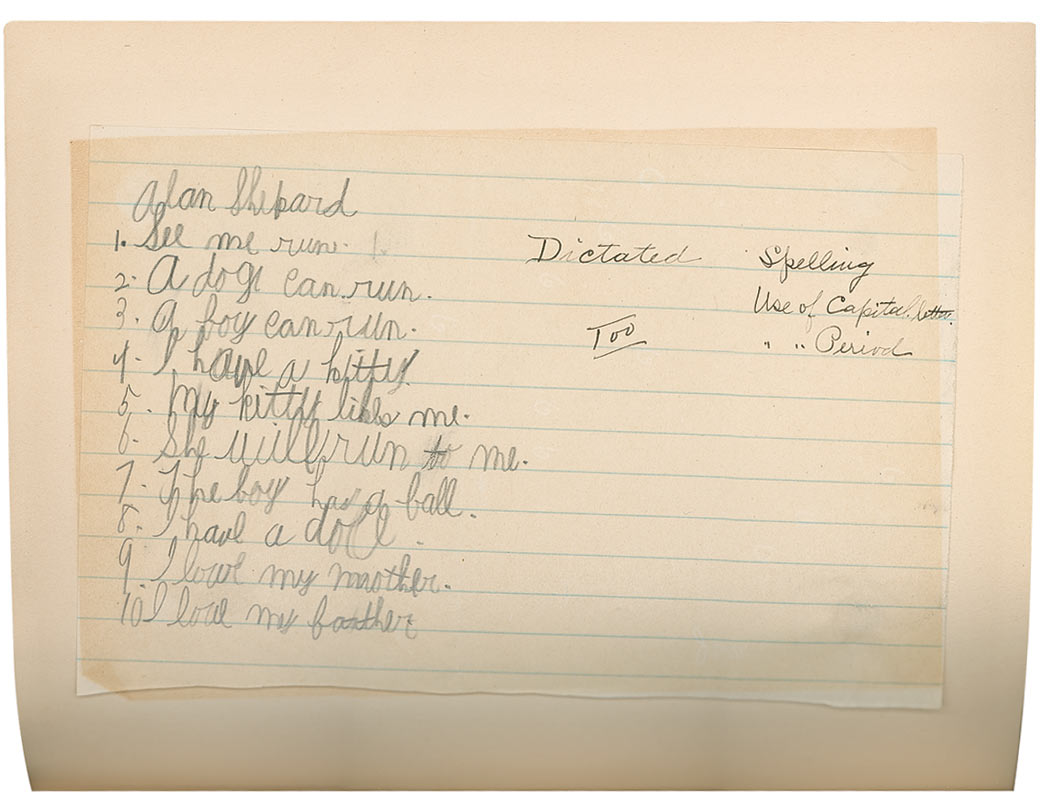 Alan Shepard
1. See me run. 1.
2. A dog can run.
3. A boy can run.
4. I have a kitty.
5. My kitty likes me.
6. She will run to me.
7. The boy has a ball.
8. I have a doll.
9. I love my mother.
10 I love my father
Dictated
Too
Spelling
Use of Capital letter.
" " Period